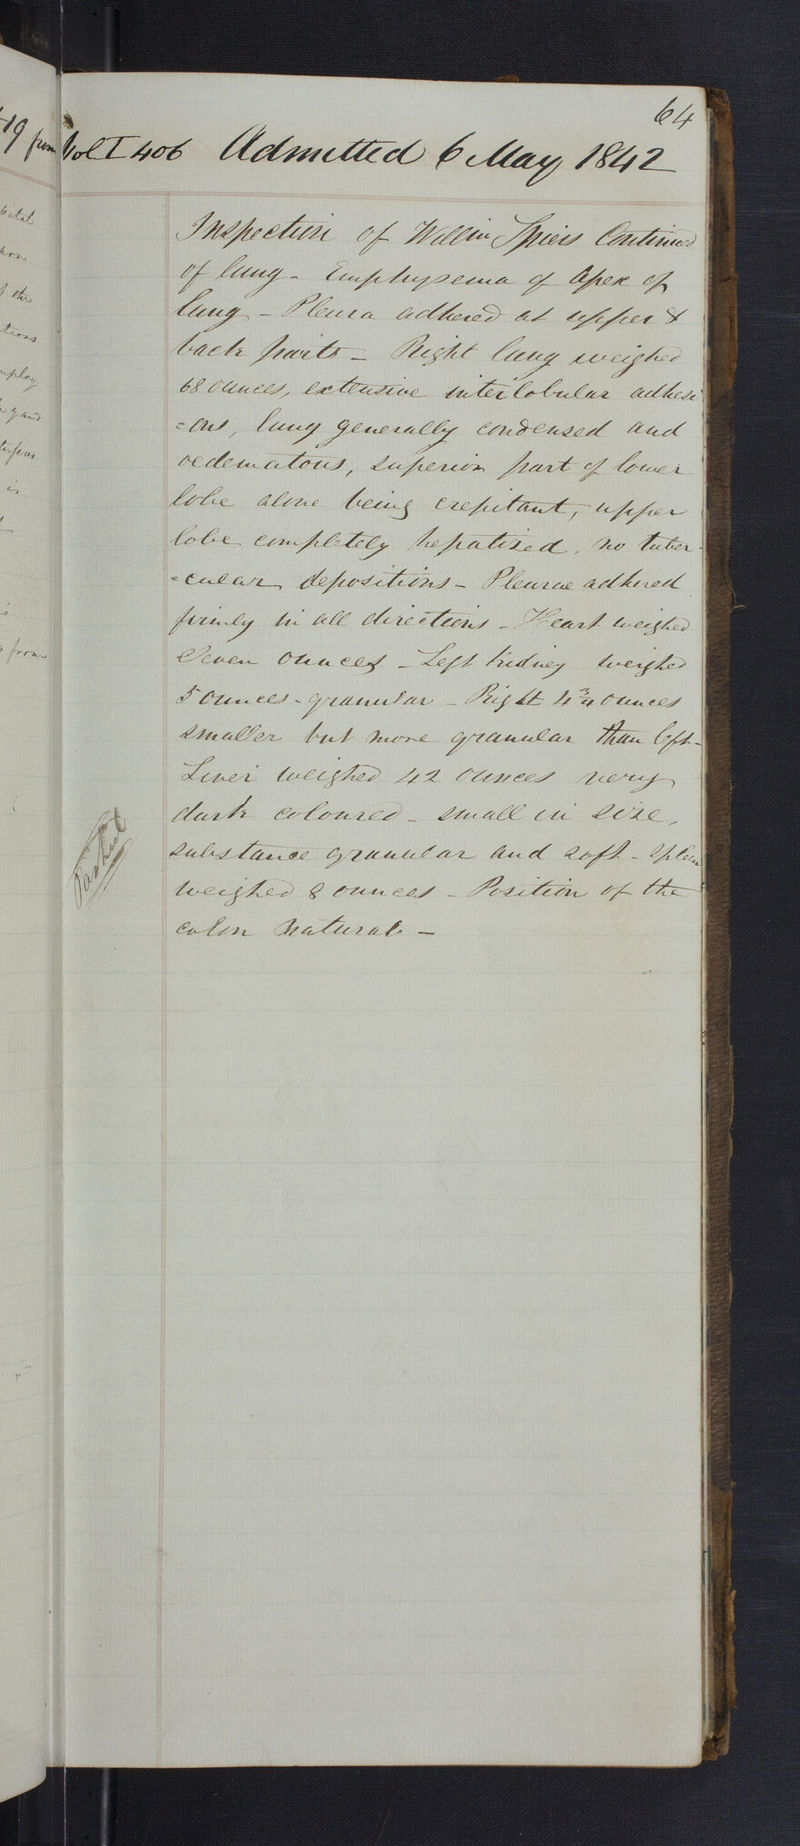 64
Vol I 406 Admitted 6 May 1842
Inspection of Willm Spiers Continued
of lung - Emphysema of Apex of
lung - Pleura adhered at upper &
back parts - Right lung weighed
68 ounces, extensive interlobular adhesi
=ons, lung generally condensed and
oedematous, superior part of lower
lobe alone being crepitant, upper
lobe completely hepatised, no tuber-
=cular depositions - Pleurae adhered
firmly in all directions - Heart weighed
Seven ounces - Left kidney weighed
5 ounces - granular - Right 4 3/4 ounces
smaller but more granular than left -
Liver weighed 42 ounces very
dark coloured - small in size,
substance granular and soft - Spleen
weighed 8 ounces - Position of the
colon natural -